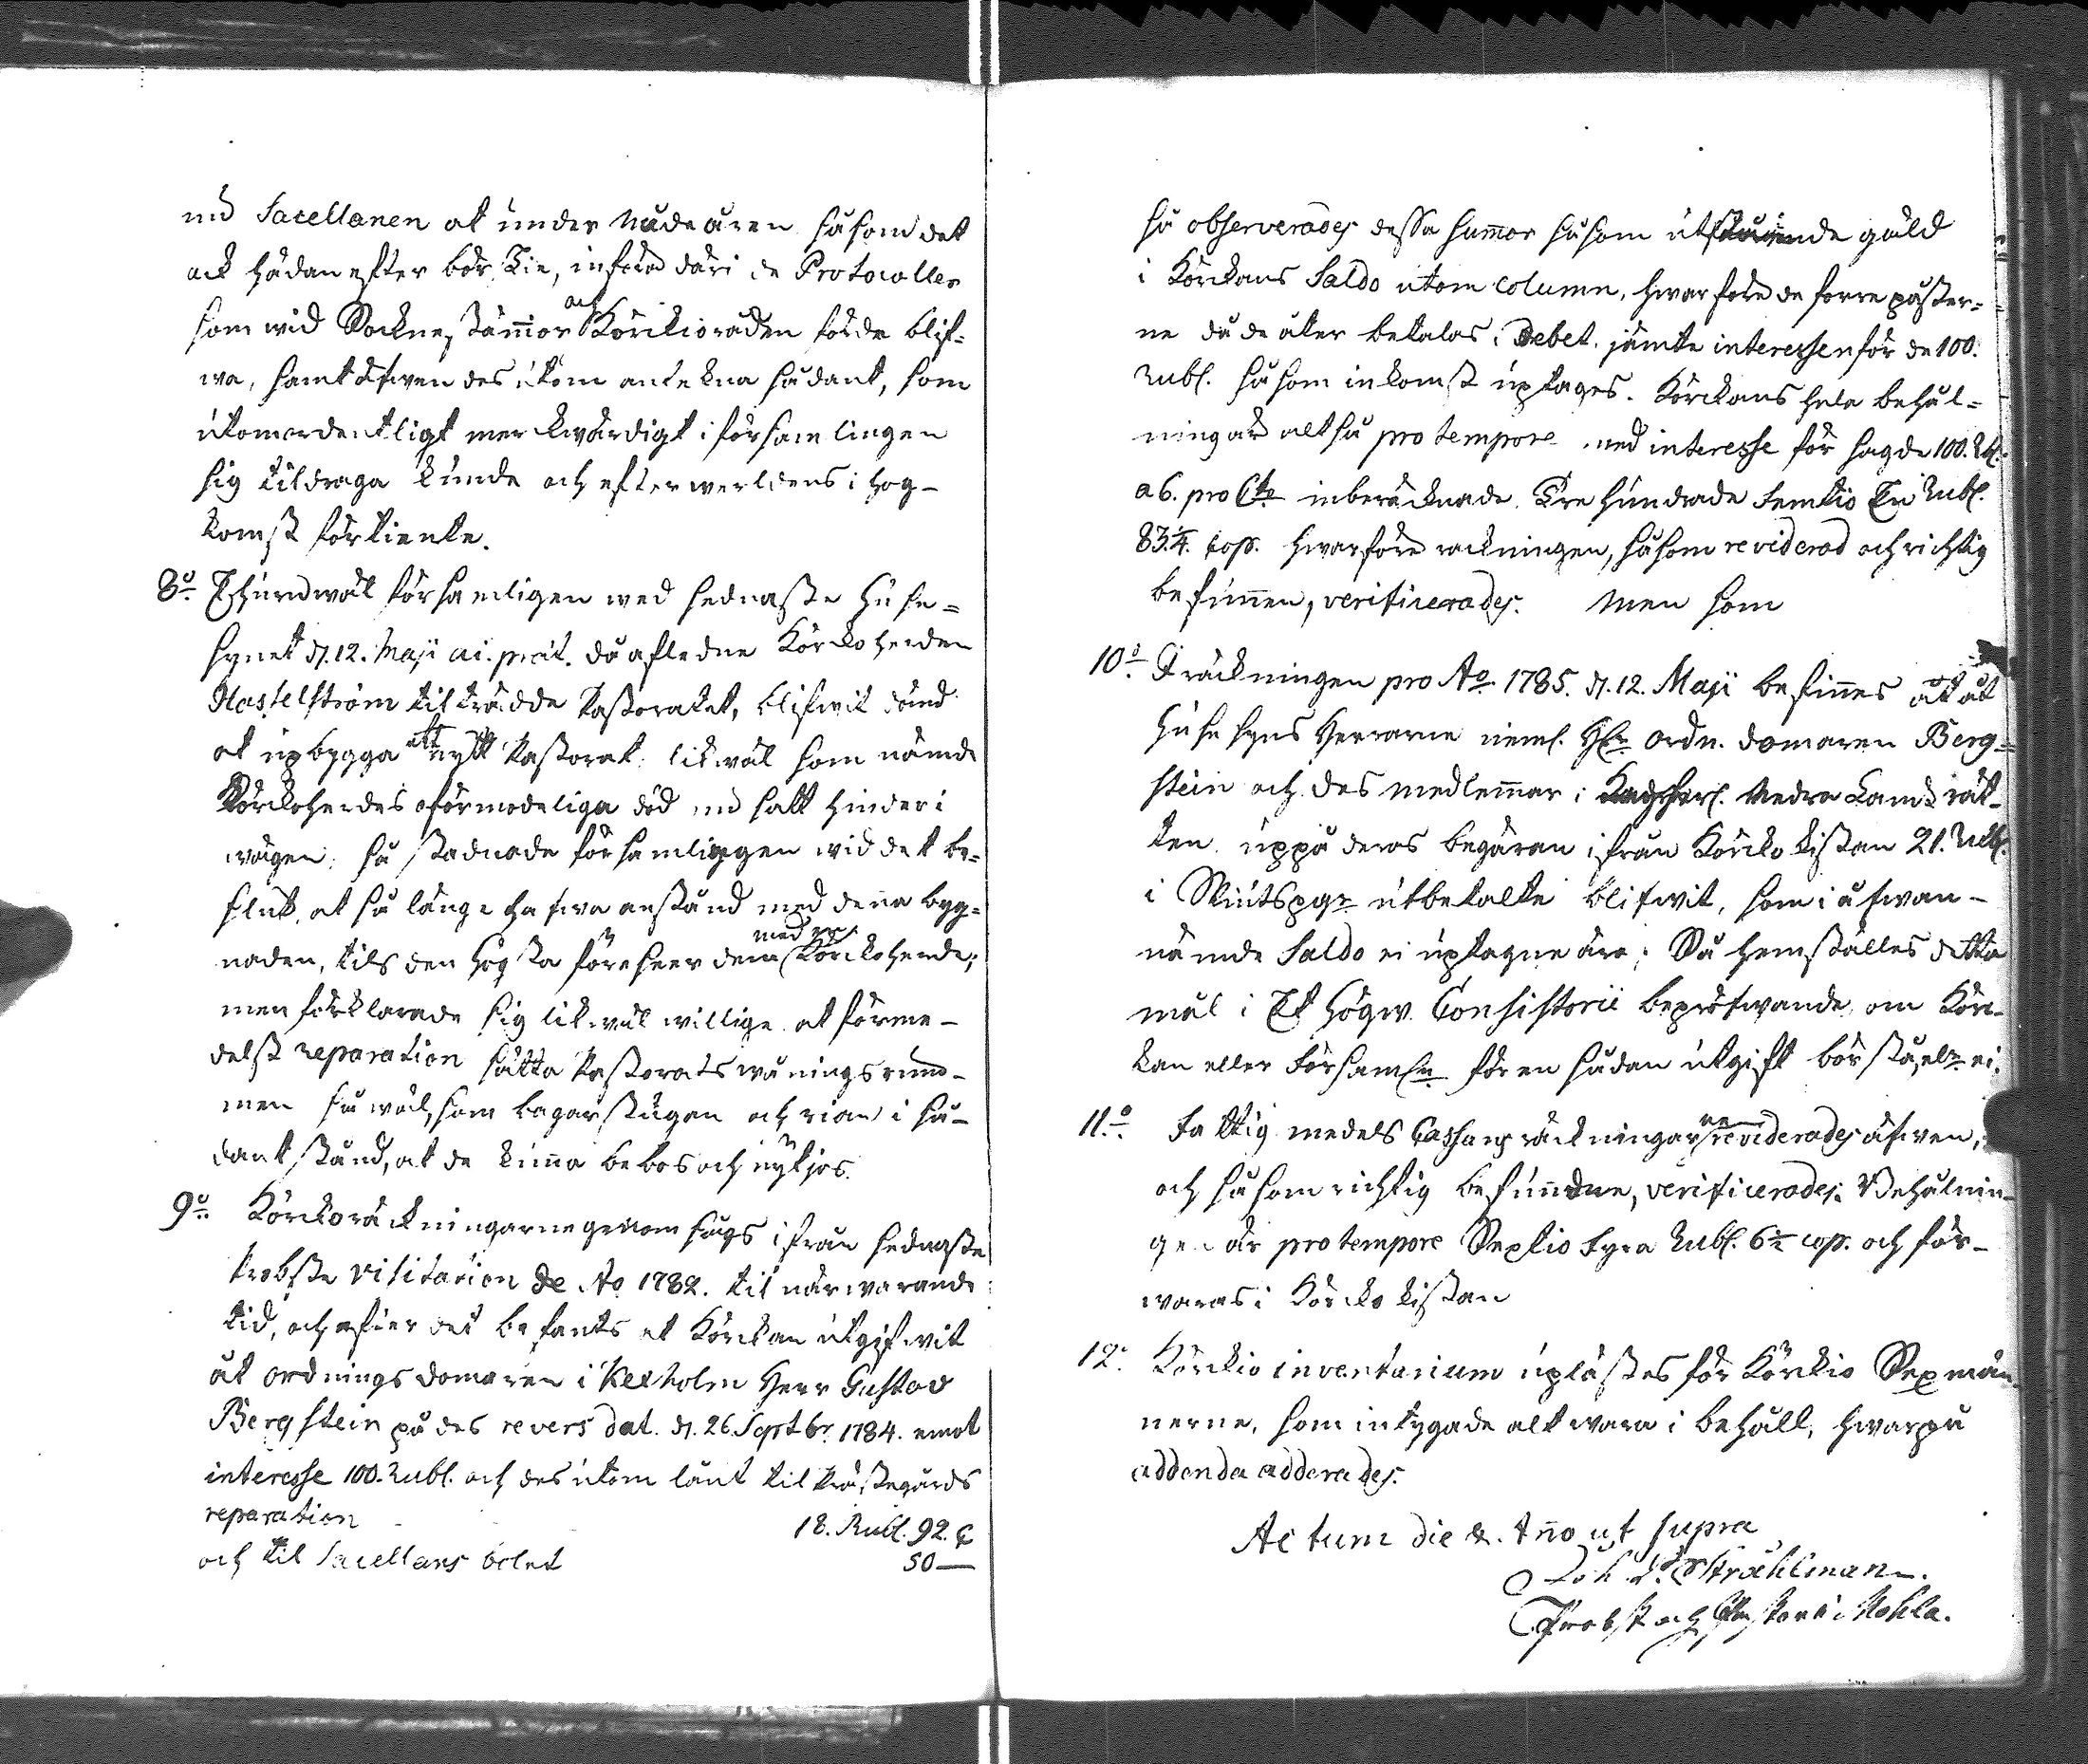 med Sacellanen at under Nådeåren såsom det
ock hädanefter bör skie, införa däri de Protocoller
som wid Sockne stämmor och Körckioråden förde blif-
wa, samt äfwen des utom antekna sådant, som
utomordentligt merckwärdigt i församlingen
sig tildraga kunde och efterwerldens i hog-
komst förtiente.
8:o Ehuruwäl församlingen wed sednaste Huse-
synet d. 12. Maji a.i. præt. då afledne Körckoherden
Hasselström tilträdde Pastoratet, blifwit
at upbygga ett nytt Pastorat: likwäl som nämde
Körckoherdes oförmodeliga död satt hinder i
wägen; så stadnade församlingen wid det be-
slut, at så länge hafwa anstånd med denna byg-
naden, tils den Högsta förseer dem med ny Körckoherde;
men förklarade sig likwäl willige at förme-
delst reparation sätta Pastorats wåningsrum-
men så wäl, som bagarstugan och rian i så-
dant stånd, at de kunna bebos och nytjas.
9:o Körckoräckningarne genomsågs ifrån sednaste
Probste Visitation de Ao 1782. til närwarande
tid, och efter det befants at Körckan utgifwit
åt ordningsdomaren i Kexholm Herr Gustav
Bergstein på des revers dat. d. 26. Septbr 1784. emot
interesse 100. Rubl. och des utom länt til Prästegårds
reparation 18. Rubl. 92. C
och til Sacellans bolet 50 —
så observerades dessa summor såsom utstående gäld
i Körckans Saldo utom column, hwarföre de förre påster-
ne då de åter betalas, i Debet. jämte interessen för de 100.
Rubl. såsom inkomst uptages. Körckans hela behål-
ning är altså pro tempore med interesse för sagde 100. Rbl.
a 6. pro Cto inberäcknade Tre Hundrade Femtio En Rubl.
83.¼. Cop. hwarföre räckningen, såsom reviderad och richtig
befunnen, verificerades. Men som
10:o I räckningen pro Ao 1785. d. 12. Maji befinnes at åt
Husesyns Herrarne neml. Hr ordn. domaren Berg-
stein och des medlemmar i Nedra Lands rät-
ten uppå deras begäran ifrån Körcko kistan 21. Rubl.
i Skiutspgr utbetalte blifwit, som i åfwan-
nämde Saldo ei uptagne äro; Så hemställes detta
mål i Et Högw. Consistorii bepröfwande, om Kör-
kan eller Församl:n för en sådan utgift bör stå, elr ei.
11:o Fattig medels Cassans räckningar ne reviderades äfwen,
och såsom richtig befundne, verificerades. Behålnin-
gen är pro tempore Sextio Fyra Rubl. 6½ cop. och för-
waras i Körcko kistan
12: Körckio inventarium uplästes för Körckio Sexmän-
nerne, som intygade alt wara i behåll, hwarpå
addenda adderades.
Actum die &. Anno ut supra
Joh. Stråhlman.
Probst och Pastor i Mohla.